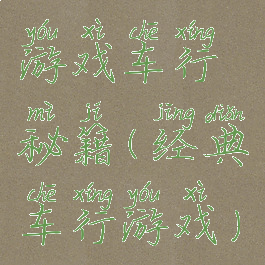 yóu xì chē xíng
游戏车行
mì jí jīng diǎn
秘籍(经典
chē xíng yóu xì
车行游戏)